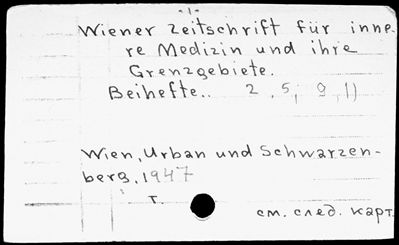 - 1 -
Wiener Zeitschrift für inne-
re Medizin und ihre
Grenzgebiete.
Beihefte.. 2, 5, 9, 11
Wien, Urban und Schwarzen-
berg, 1947
т.
см. след. карт.